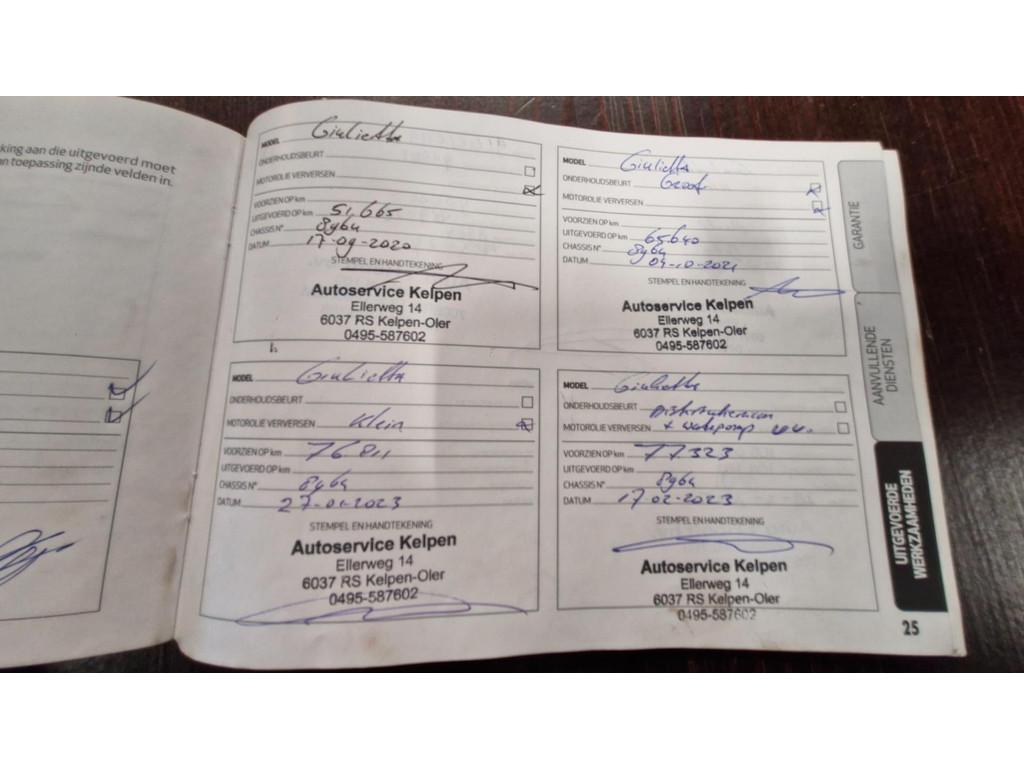 king aan die uitgevoerd moet
n toepassing zijnde velden in.
MODEL Giulietta
ONDERHOUDSBEURT
MOTOROLIE VERVERSEN
VOORZIEN OP km
UITGEVOERD OP km 51,665
CHASSIS N°
DATUM 17-09-2020
STEMPEL EN HANDTEKENING
Autoservice Kelpen
Ellerweg 14
6037 RS Kelpen-Oler
0495-587602
MODEL Giulietta
ONDERHOUDSBEURT Groot
MOTOROLIE VERVERSEN
VOORZIEN OP km
UITGEVOERD OP km 65640
CHASSIS N°
DATUM 04-10-2021
STEMPEL EN HANDTEKENING
Autoservice Kelpen
Ellerweg 14
6037 RS Kelpen-Oler
0495-587602
MODEL Giulietta
ONDERHOUDSBEURT
MOTOROLIE VERVERSEN Klein
VOORZIEN OP km 76811
UITGEVOERD OP km
CHASSIS N°
DATUM 27-01-2023
STEMPEL EN HANDTEKENING
Autoservice Kelpen
Ellerweg 14
6037 RS Kelpen-Oler
0495-587602
MODEL Giulietta
ONDERHOUDSBEURT
MOTOROLIE VERVERSEN + waterpomp
VOORZIEN OP km 77323
UITGEVOERD OP km
CHASSIS N°
DATUM 17-02-2023
STEMPEL EN HANDTEKENING
Autoservice Kelpen
Ellerweg 14
6037 RS Kelpen-Oler
0495-587602
GARANTIE
AANVULLENDE
DIENSTEN
UITGEVOERDE
WERKZAAMHEDEN
25